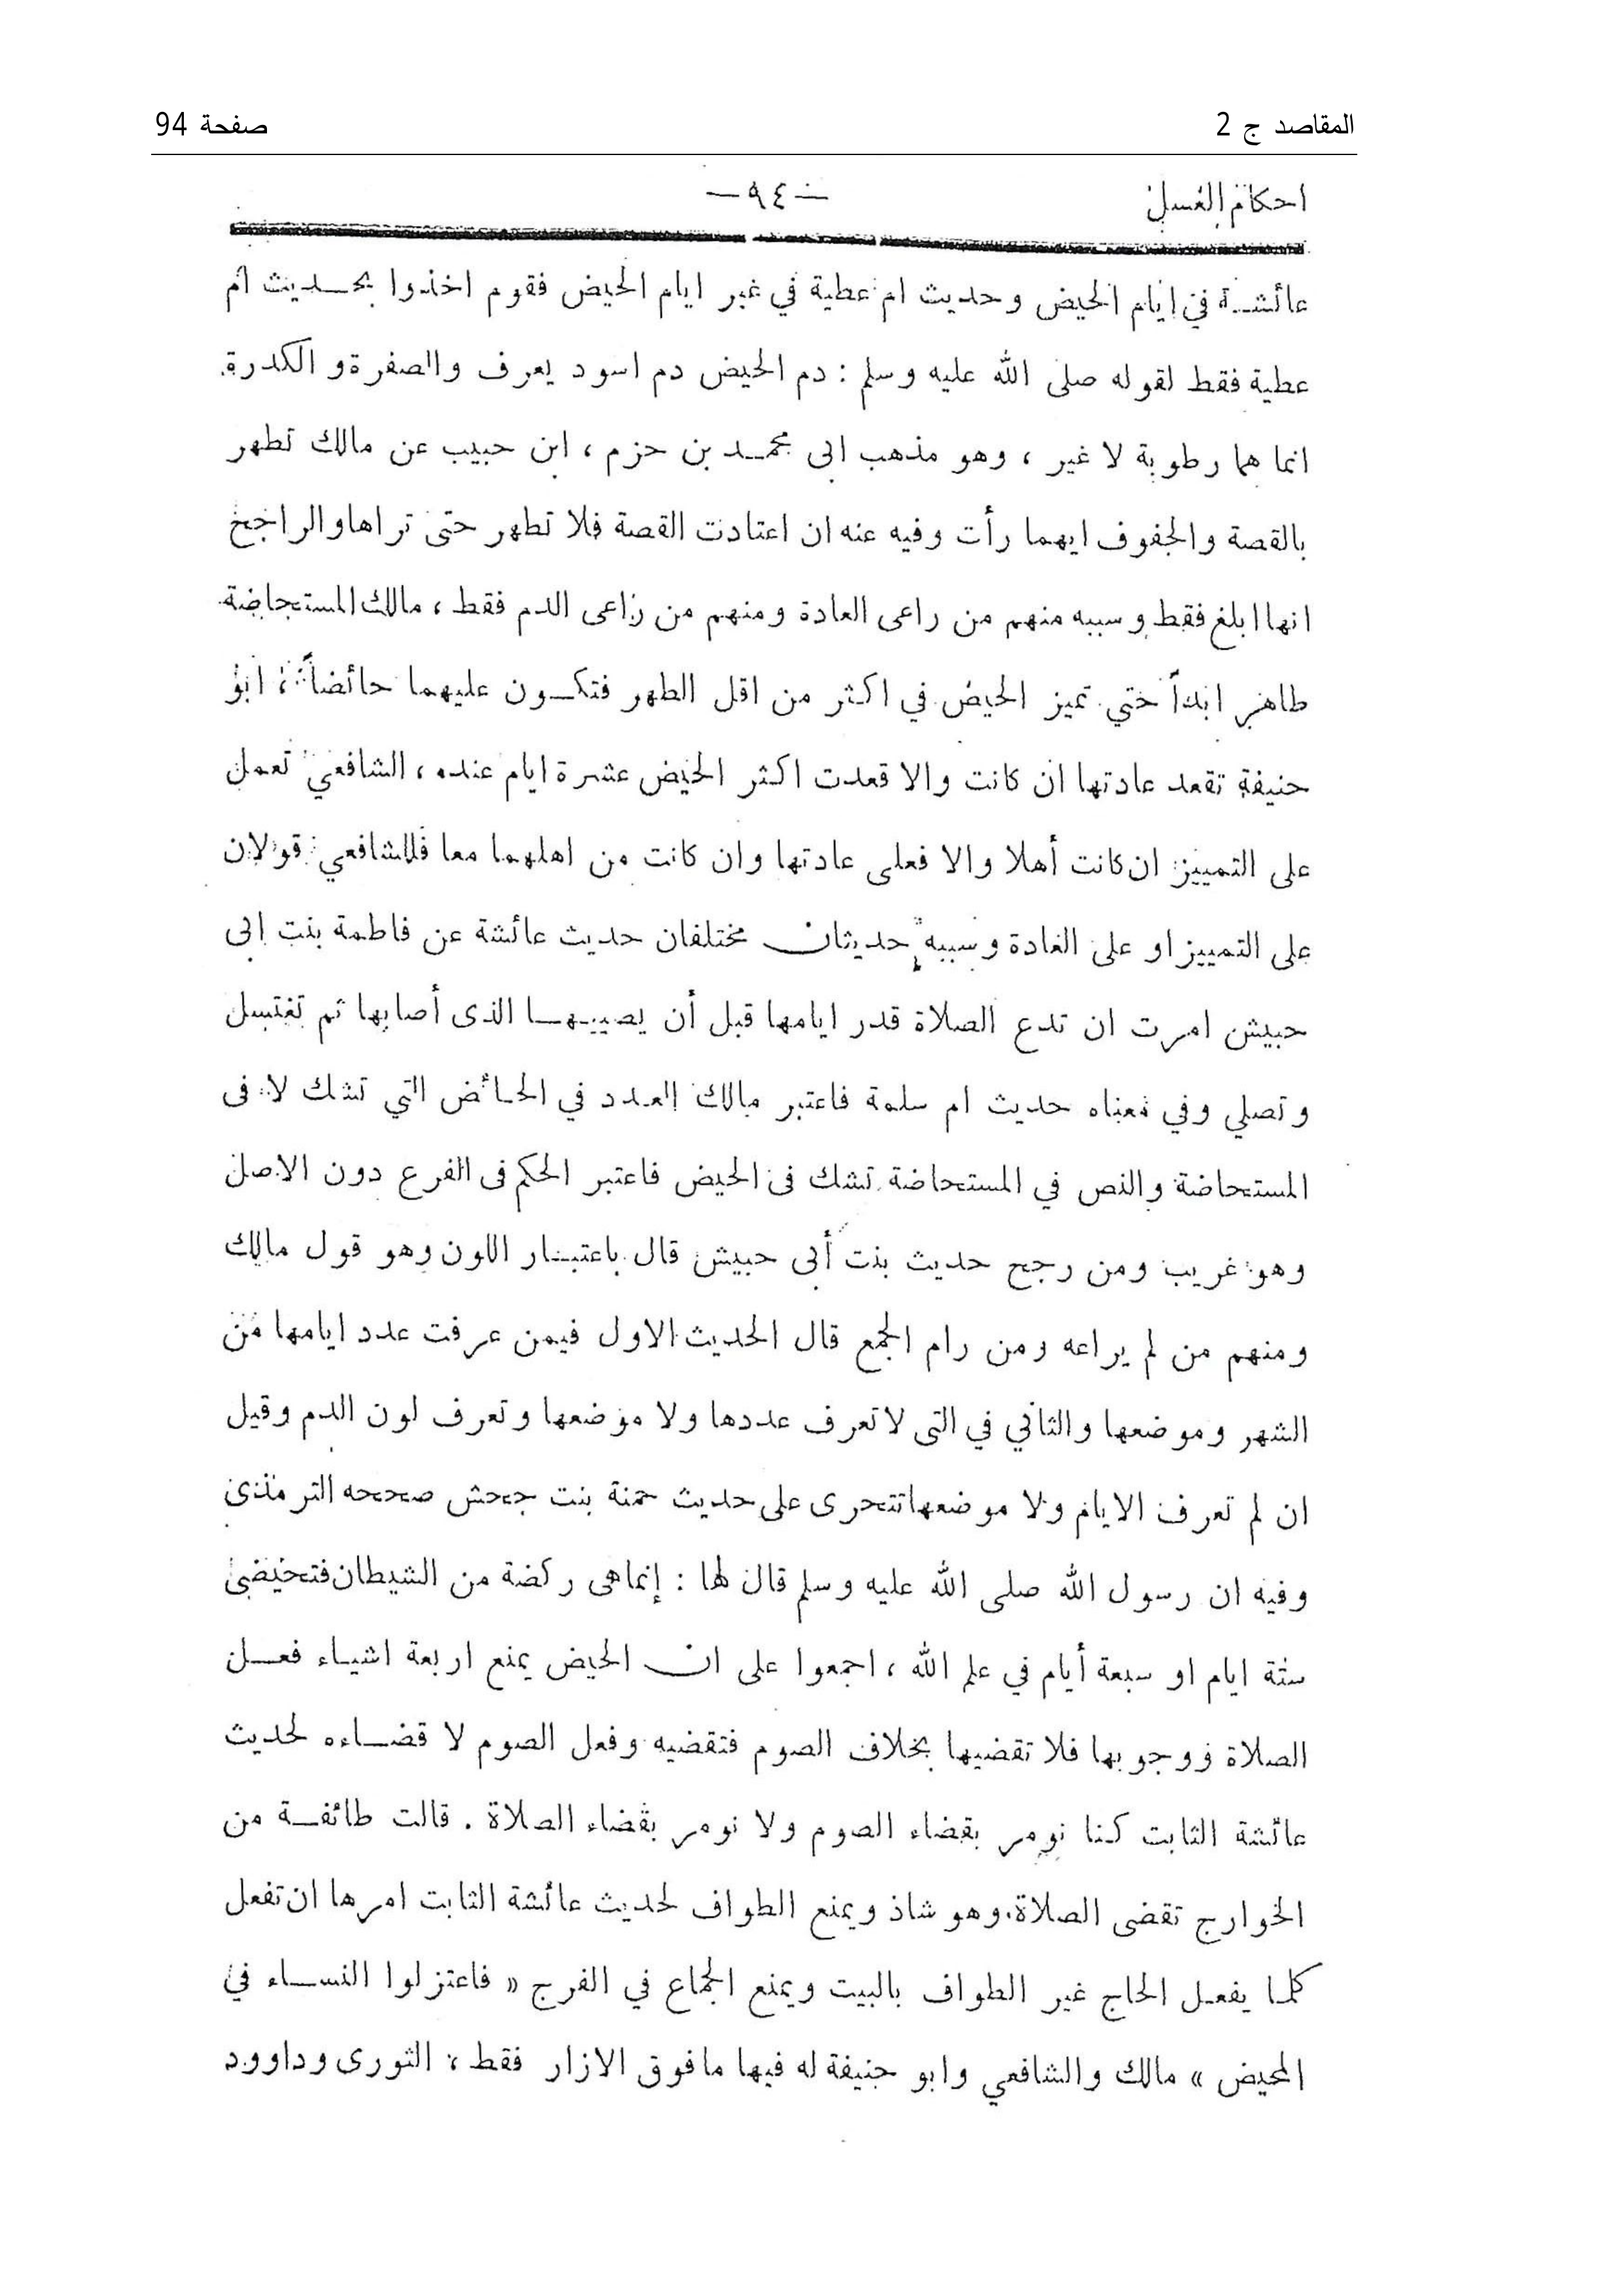 المقاصد ج 2
صفحة 94
احكام الغسل
— ٩٤ —
عائشة في ايام الحيض وحديث ام عطية في غير ايام الحيض فقوم اخذوا بحديث ام
عطية فقط لقوله صلى الله عليه وسلم : دم الحيض دم اسود يعرف والصفرة و الكدرة
انما هما رطوبة لا غير ، وهو مذهب ابى محمد بن حزم ، ابن حبيب عن مالك تطهر
بالقصة والجفوف ايهما رأت وفيه عنه ان اعتادت القصة فلا تطهر حتى تراها والراجح
انها ابلغ فقط وسببه منهم من راعى العادة ومنهم من راعى الدم فقط ، مالك المستحاضة
طاهر ابداً حتي تميز الحيض في اكثر من اقل الطهر فتكون عليهما حائضاً ، ابو
حنيفة تقعد عادتها ان كانت والا قعدت اكثر الحيض عشرة ايام عنده ، الشافعي تعمل
على التمييز ان كانت أهلا والا فعلى عادتها وان كانت من اهلهما معا فللشافعي قولان
على التمييز او على العادة وسببه حديثان مختلفان حديث عائشة عن فاطمة بنت ابى
حبيش امرت ان تدع الصلاة قدر ايامها قبل أن يصيبها الذى أصابها ثم تغتسل
وتصلي وفي معناه حديث ام سلمة فاعتبر مالك العدد في الحائض التي تشك لا فى
المستحاضة والنص في المستحاضة تشك فى الحيض فاعتبر الحكم فى الفرع دون الاصل
وهو غريب ومن رجح حديث بنت أبى حبيش قال باعتبار اللون وهو قول مالك
ومنهم من لم يراعه ومن رام الجمع قال الحديث الاول فيمن عرفت عدد ايامها من
الشهر وموضعها والثاني في التى لا تعرف عددها ولا موضعها وتعرف لون الدم وقيل
ان لم تعرف الايام ولا موضعها تتحرى على حديث حمنة بنت جحش صححه الترمذى
وفيه ان رسول الله صلى الله عليه وسلم قال لها : إنما هى ركضة من الشيطان فتحيضى
ستة ايام او سبعة أيام في علم الله ، اجمعوا على ان الحيض يمنع اربعة اشياء فعل
الصلاة ووجوبها فلا تقضيها بخلاف الصوم فتقضيه وفعل الصوم لا قضاءه لحديث
عائشة الثابت كنا نومر بقضاء الصوم ولا نومر بقضاء الصلاة . قالت طائفة من
الخوارج تقضى الصلاة وهو شاذ ويمنع الطواف لحديث عائشة الثابت امرها ان تفعل
كلما يفعل الحاج غير الطواف بالبيت ويمنع الجماع في الفرج « فاعتزلوا النساء في
المحيض » مالك والشافعي وابو حنيفة له فيها ما فوق الازار فقط ، الثورى وداوود